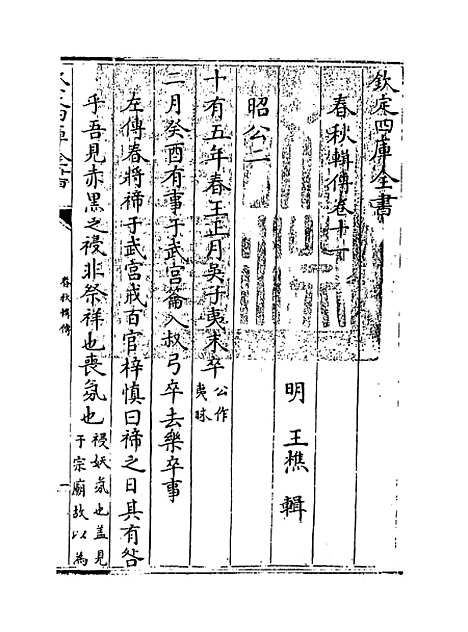 欽定四庫全書
春秋輯傳卷十一
明 王樵 輯
昭公二
十有五年春王正月吳子夷末卒公作夷昧
二月癸酉有事于武宮籥入叔弓卒去樂卒事
左傳春將禘于武宮戒百官梓慎曰禘之日其有咎
乎吾見赤黑之祲非祭祥也喪氛也祲妖氛也蓋見于宗廟故以為
春秋輯傳
一